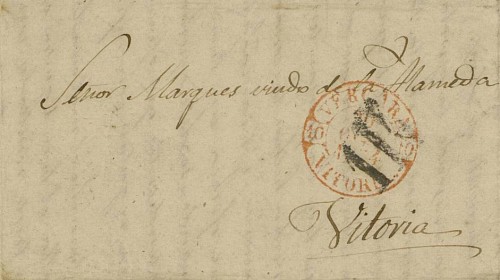 Señor Marques viudo de la Alameda
VERGARA
VITORIA
Vitoria